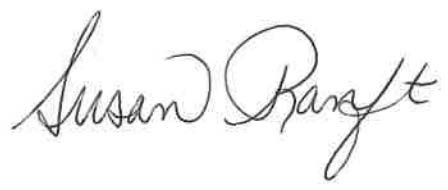 Susan Ranft